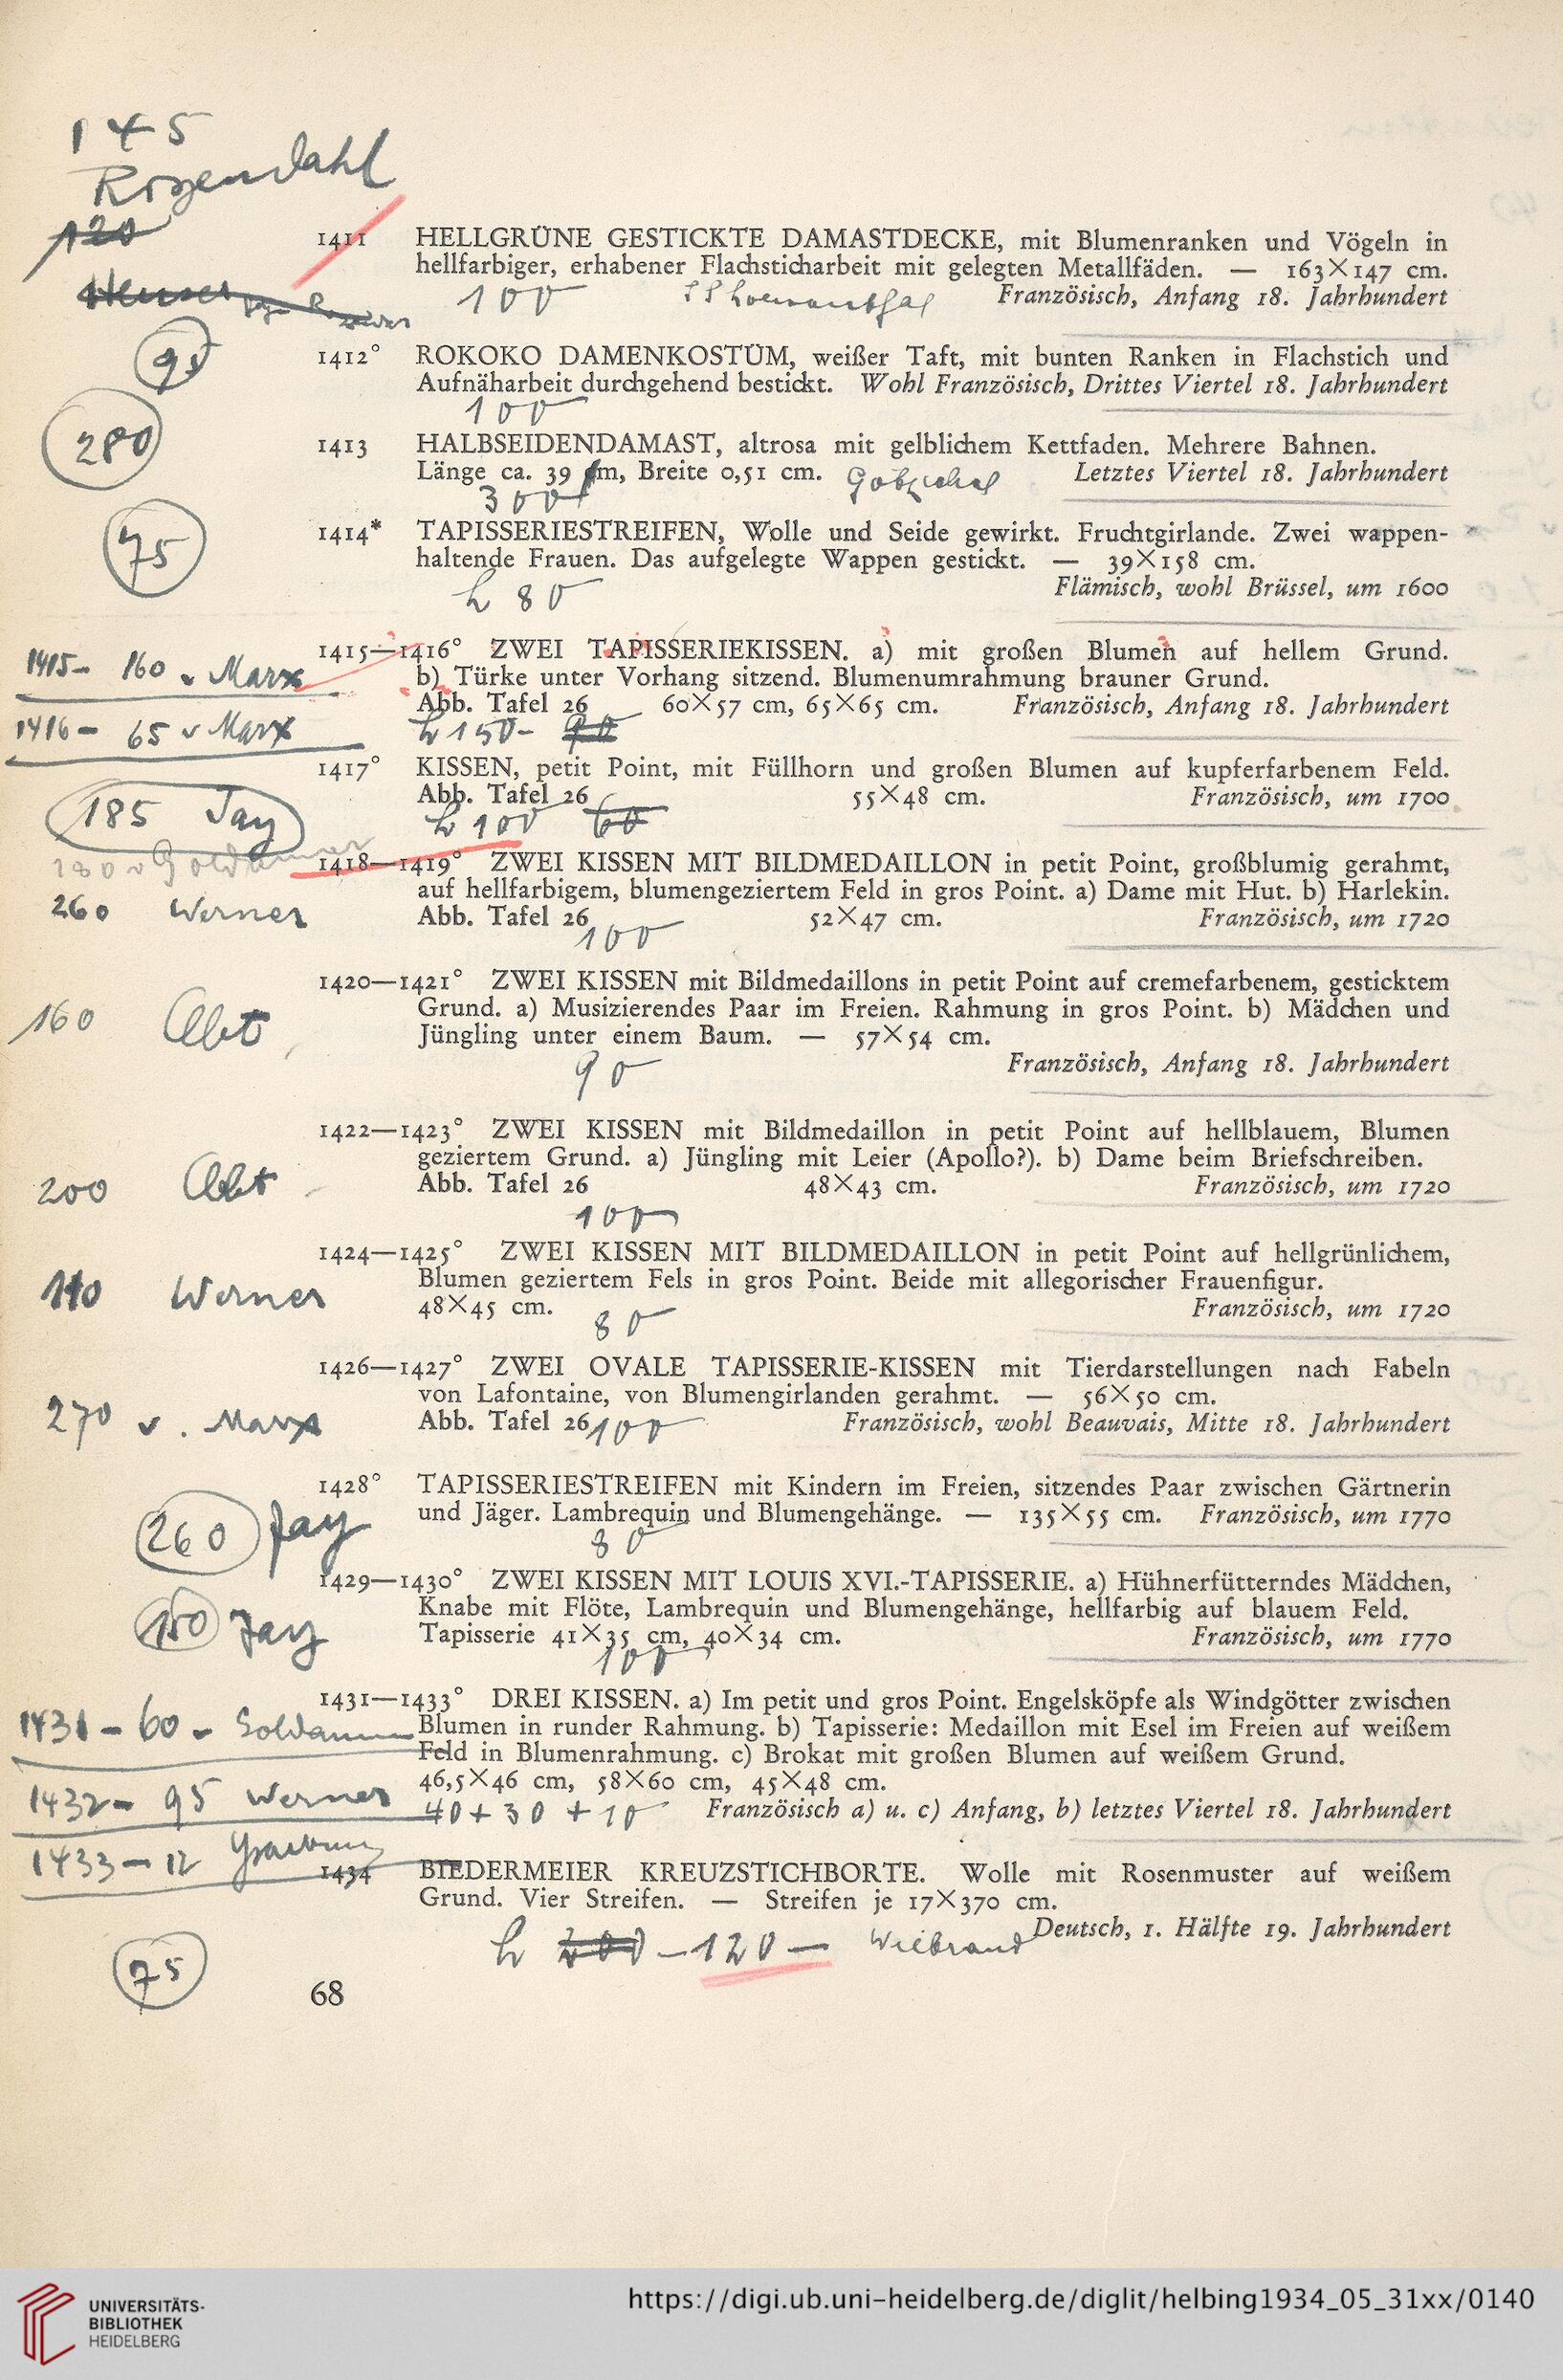 145
Rosendahl
120
1411 HELLGRÜNE GESTICKTE DAMASTDECKE, mit Blumenranken und Vögeln in
hellfarbiger, erhabener Flachsticharbeit mit gelegten Metallfäden. — 163×147 cm.
100 Französisch, Anfang 18. Jahrhundert
95
1412° ROKOKO DAMENKOSTÜM, weißer Taft, mit bunten Ranken in Flachstich und
Aufnäharbeit durchgehend bestickt. Wohl Französisch, Drittes Viertel 18. Jahrhundert
100
280
1413 HALBSEIDENDAMAST, altrosa mit gelblichem Kettfaden. Mehrere Bahnen.
Länge ca. 39 m, Breite 0,51 cm. Letztes Viertel 18. Jahrhundert
300
75
1414* TAPISSERIESTREIFEN, Wolle und Seide gewirkt. Fruchtgirlande. Zwei wappen-
haltende Frauen. Das aufgelegte Wappen gestickt. — 39×158 cm.
80 Flämisch, wohl Brüssel, um 1600
1415- 160 v Marx
1415—1416° ZWEI TAPISSERIEKISSEN. a) mit großen Blumen auf hellem Grund.
b) Türke unter Vorhang sitzend. Blumenumrahmung brauner Grund.
Abb. Tafel 26 60×57 cm, 65×65 cm. Französisch, Anfang 18. Jahrhundert
1416- 65 v Marx
150- 90
1417° KISSEN, petit Point, mit Füllhorn und großen Blumen auf kupferfarbenem Feld.
Abb. Tafel 26 55×48 cm. Französisch, um 1700
185 Jay
100 60
180 v Goldammer
1418—1419° ZWEI KISSEN MIT BILDMEDAILLON in petit Point, großblumig gerahmt,
auf hellfarbigem, blumengeziertem Feld in gros Point. a) Dame mit Hut. b) Harlekin.
260 Werner
Abb. Tafel 26 52×47 cm. Französisch, um 1720
100
1420—1421° ZWEI KISSEN mit Bildmedaillons in petit Point auf cremefarbenem, gesticktem
Grund. a) Musizierendes Paar im Freien. Rahmung in gros Point. b) Mädchen und
160 Abt
Jüngling unter einem Baum. — 57×54 cm.
90 Französisch, Anfang 18. Jahrhundert
1422—1423° ZWEI KISSEN mit Bildmedaillon in petit Point auf hellblauem, Blumen
geziertem Grund. a) Jüngling mit Leier (Apollo?). b) Dame beim Briefschreiben.
200 Abt
Abb. Tafel 26 48×43 cm. Französisch, um 1720
100
1424—1425° ZWEI KISSEN MIT BILDMEDAILLON in petit Point auf hellgrünlichem,
Blumen geziertem Fels in gros Point. Beide mit allegorischer Frauenfigur.
Werner
48×45 cm. Französisch, um 1720
80
1426—1427° ZWEI OVALE TAPISSERIE-KISSEN mit Tierdarstellungen nach Fabeln
von Lafontaine, von Blumengirlanden gerahmt. — 56×50 cm.
270 v. Marx
Abb. Tafel 26 100 Französisch, wohl Beauvais, Mitte 18. Jahrhundert
1428° TAPISSERIESTREIFEN mit Kindern im Freien, sitzendes Paar zwischen Gärtnerin
und Jäger. Lambrequin und Blumengehänge. — 135×55 cm. Französisch, um 1770
260 Jay
80
1429—1430° ZWEI KISSEN MIT LOUIS XVI.-TAPISSERIE. a) Hühnerfütterndes Mädchen,
Knabe mit Flöte, Lambrequin und Blumengehänge, hellfarbig auf blauem Feld.
150 Jay
Tapisserie 41×35 cm, 40×34 cm. Französisch, um 1770
100
1431—1433° DREI KISSEN. a) Im petit und gros Point. Engelsköpfe als Windgötter zwischen
1431 - 60 - Goldammer
Blumen in runder Rahmung. b) Tapisserie: Medaillon mit Esel im Freien auf weißem
Feld in Blumenrahmung. c) Brokat mit großen Blumen auf weißem Grund.
46,5×46 cm, 58×60 cm, 45×48 cm.
1432- 95 Werner
40 + 30 + 10 Französisch a) u. c) Anfang, b) letztes Viertel 18. Jahrhundert
1433- 12
1434 BIEDERMEIER KREUZSTICHBORTE. Wolle mit Rosenmuster auf weißem
Grund. Vier Streifen. — Streifen je 17×370 cm.
Deutsch, 1. Hälfte 19. Jahrhundert
200 - 120 — Wilbrand
75
68
UNIVERSITÄTS-
BIBLIOTHEK
HEIDELBERG
https://digi.ub.uni-heidelberg.de/diglit/helbing1934_05_31xx/0140